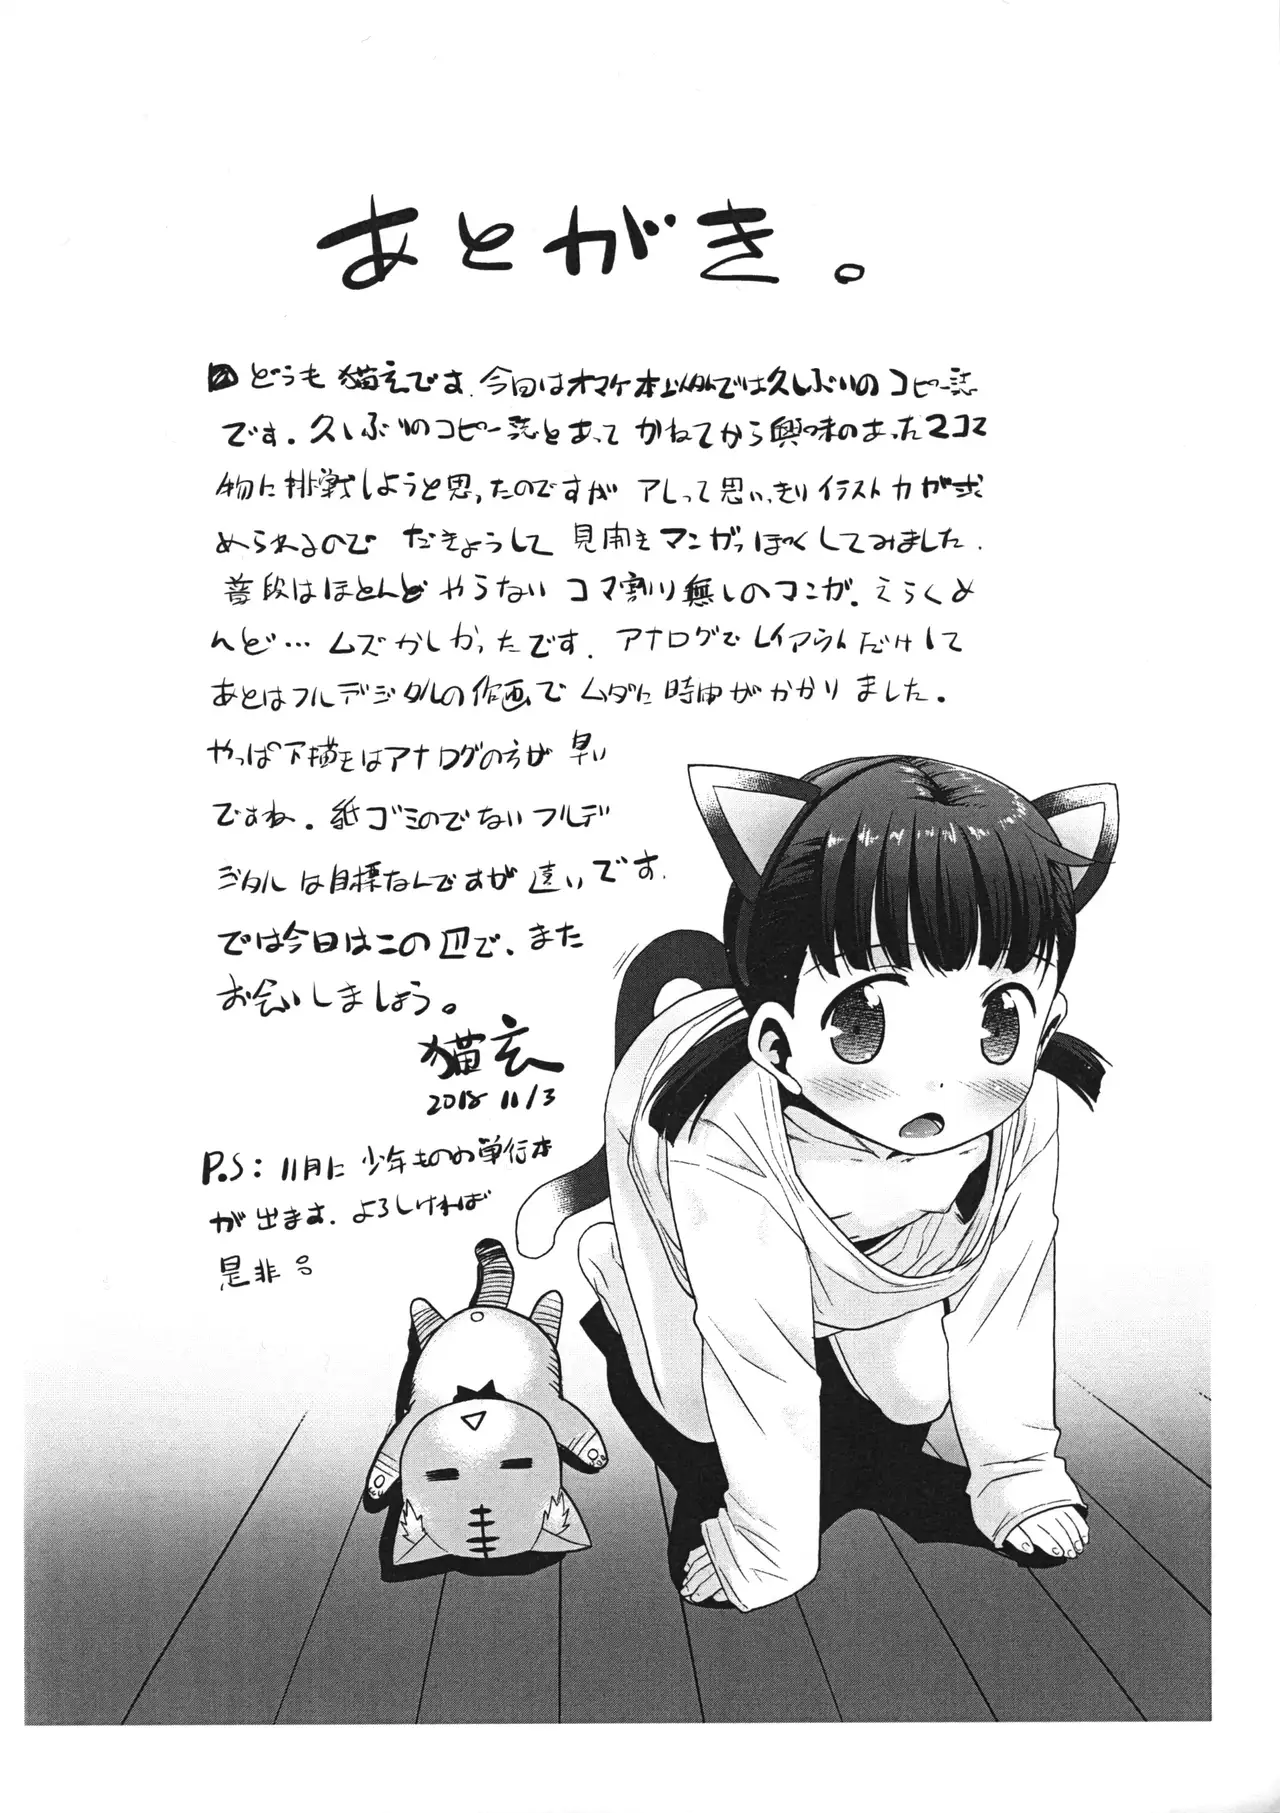 あとがき。
どうも猫玄です。今回はオマケ本以外では久しぶりのコピー誌
です。久しぶりのコピー誌とあって かねてから興味のあった2コマ
物に挑戦しようと思ったのですが アレって思いっきりイラスト力が求
められるので だきょうして 見開きマンガっぽくしてみました。
普段はほとんどやらない コマ割り無しのマンガ。えらくめ
んど…ムズかしかったです。アナログでレイアウトだけして
あとはフルデジタルの作画で ムダに時間がかかりました。
やっぱ下描きはアナログの方が早い
ですね。紙ゴミのでないフルデ
ジタルは目標なんですが遠いです。
では今日はこの辺で、また
お会いしましょう。
猫玄
2018 11/3
P.S: 11月に 少年ものの単行本
が出ます。よろしければ
是非